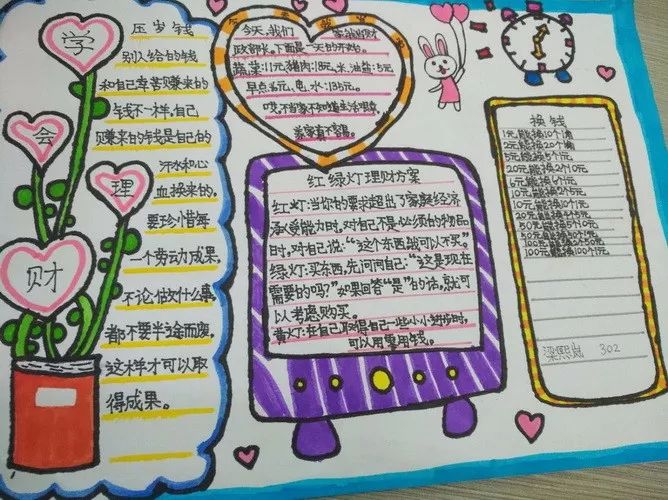 学
会
理
财
压岁钱
别人给的钱
和自己辛苦赚来的
钱不一样,自己
赚来的钱是自己的
汗水和心
血换来的。
要珍惜每
一个劳动成果,
不论做什么事,
都不要半途而废,
这样才可以取
得成果。
今天,我们 家我当财
政部长。下面是一天的开始。
蔬菜:11元,猪肉:18元,米、油盐:5元
早点:6元,电、水:135元。
哎,不当家不知道生活艰辛,
红绿灯理财方案
红灯:当你的要求超出了家庭经济
承受能力时,对自己不是必须的物品
时,对自己说:“这个东西我可以不买。”
绿灯:买东西,先问问自己:“这是现在
需要的吗?”如果回答“是”的话,就可
以考虑购买。
黄灯:在自己取得自己一些小小进步时,
可以用零用钱。
换钱
1元能换10个1角
2元能换20个1角
5元能换5个1元
20元能换2个10元
10元能换2个5元
10元能换10个1元
50元能换5个10元
100元能换100个1元
梁熙岚 302